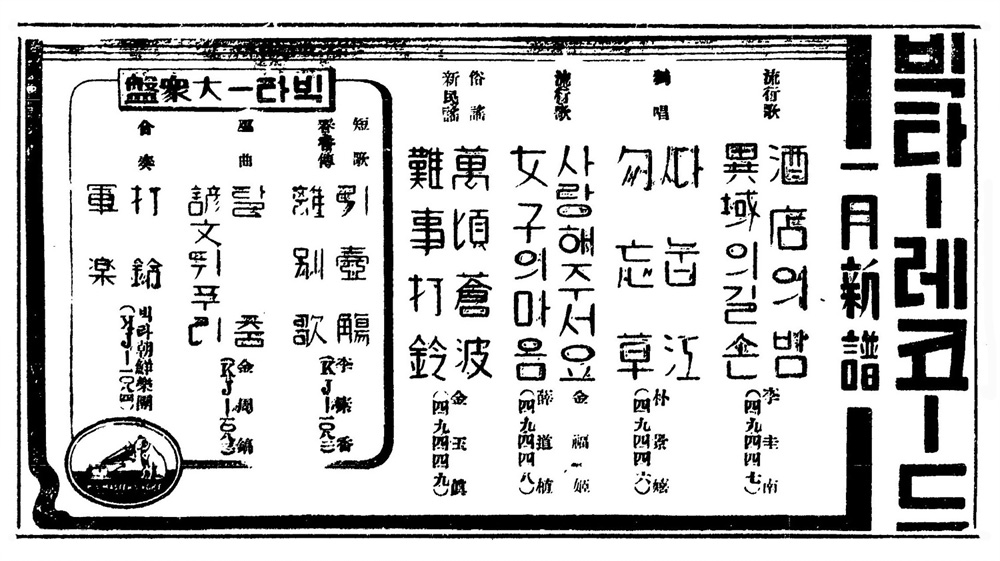 빅타ー레코ー드
一月新譜
流行歌
酒店의밤
異域의길손
李圭南
(四九四四七)
獨唱
따눕江
勿忘草
朴景嬉
(四九四四六)
流行歌
사랑해주서요
女子의마음
金福姬
薛道植
(四九四四八)
俗謠
新民謠
萬頃蒼波
難事打鈴
金玉眞
(四九四四九)
빅타ー大衆盤
短歌
引壺觴
春香傳
離別歌
巫曲
탈춤
諺文뒤푸리
合奏
打鈴
軍楽
빅타朝鮮樂團